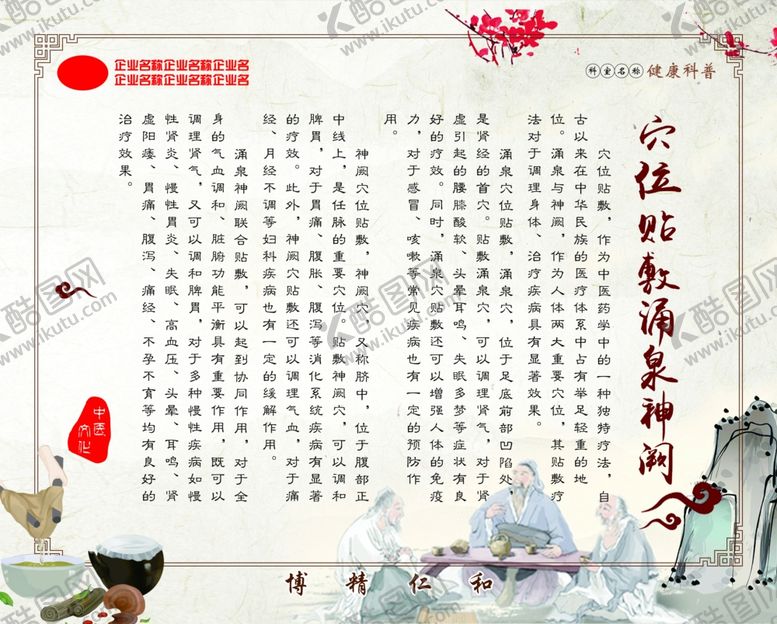 企业名称企业名称企业名
企业名称企业名称企业名
科室名称 健康科普
穴位贴敷涌泉神阙
穴位贴敷，作为中医药学中的一种独特疗法，自
古以来在中华民族的医疗体系中占有举足轻重的地
位。涌泉与神阙，作为人体两大重要穴位，其贴敷疗
法对于调理身体、治疗疾病具有显著效果。
涌泉穴位贴敷，涌泉穴，位于足底前部凹陷处，
是肾经的首穴。贴敷涌泉穴，可以调理肾气，对于肾
虚引起的腰膝酸软、头晕耳鸣、失眠多梦等症状有良
好的疗效。同时，涌泉穴贴敷还可以增强人体的免疫
力，对于感冒、咳嗽等常见疾病也有一定的预防作
用。
神阙穴位贴敷，神阙穴，又称脐中，位于腹部正
中线上，是任脉的重要穴位。贴敷神阙穴，可以调和
脾胃，对于胃痛、腹胀、腹泻等消化系统疾病有显著
的疗效。此外，神阙穴贴敷还可以调理气血，对于痛
经、月经不调等妇科疾病也有一定的缓解作用。
涌泉神阙联合贴敷，可以起到协同作用，对于全
身的气血调和、脏腑功能平衡具有重要作用，既可以
调理肾气，又可以调和脾胃，对于多种慢性疾病如慢
性肾炎、慢性胃炎、失眠、高血压、头晕、耳鸣、肾
虚阳痿、胃痛、腹泻、痛经、不孕不育等均有良好的
治疗效果。
中医
文化
博精仁和
酷图网
www.ikutu.com